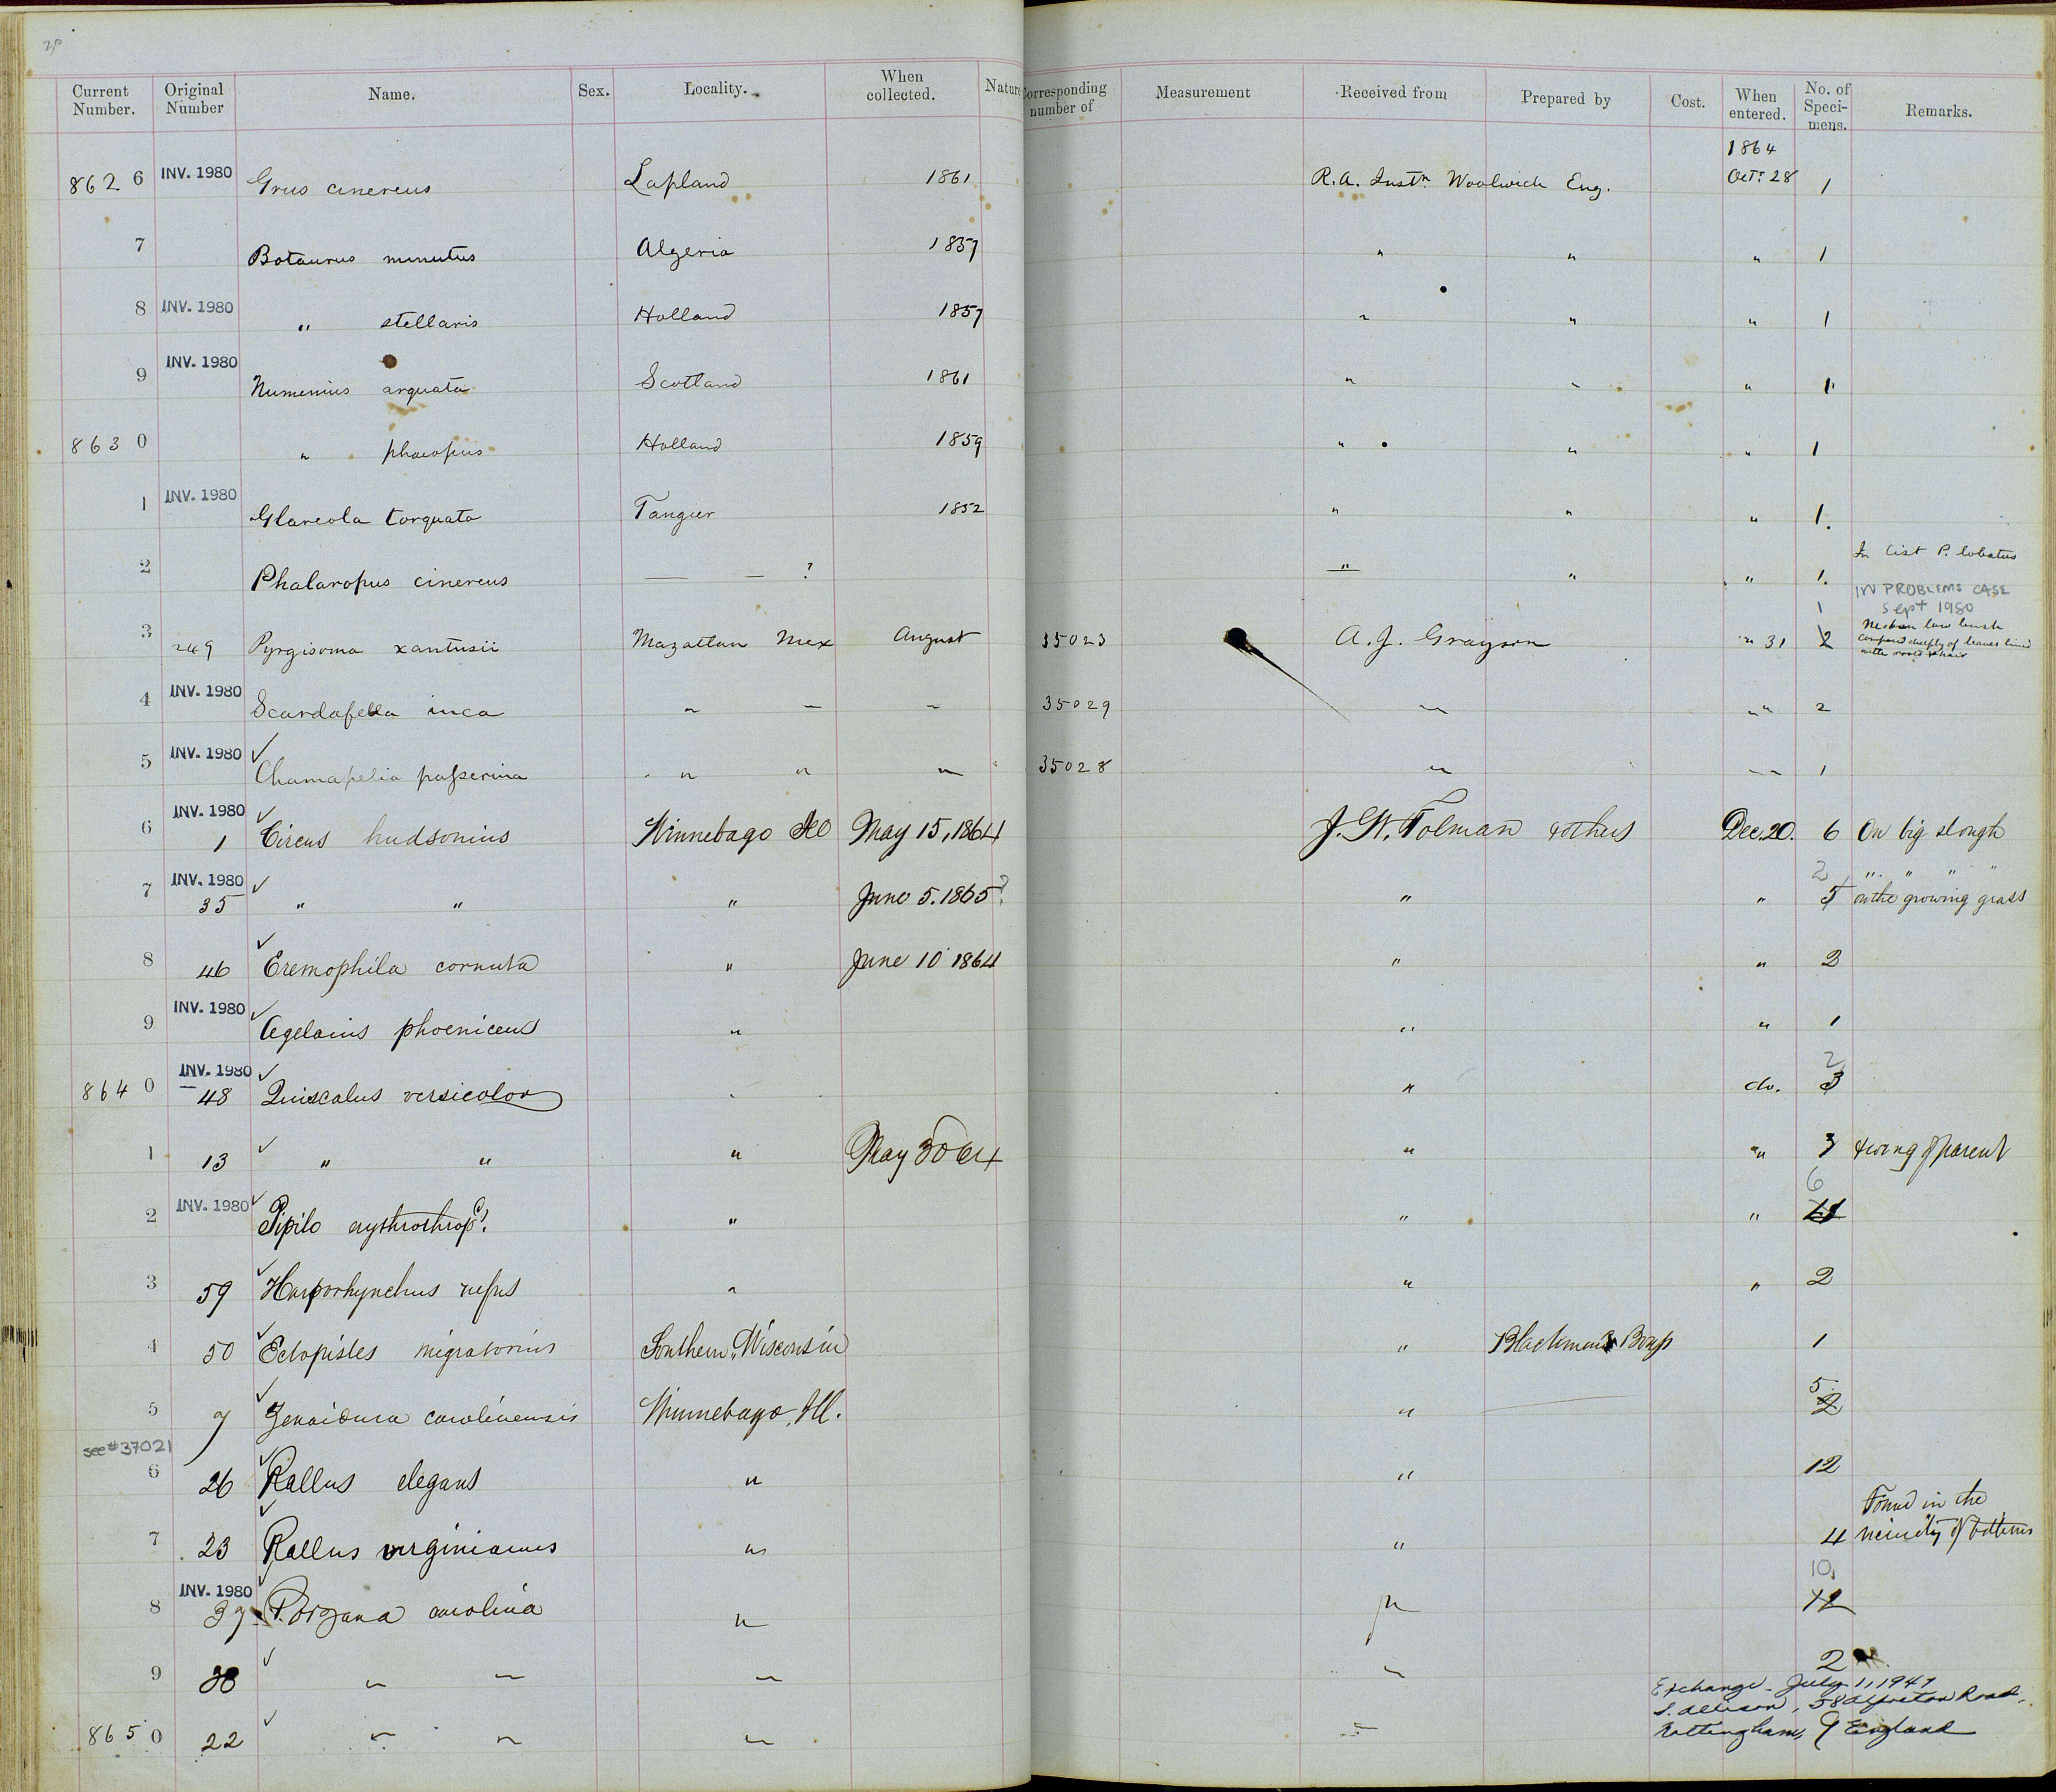 Current Number. Original Number Name. Sex. Locality. When collected. Nature Corresponding number of Measurement Received from Prepared by Cost. When entered. No. of Speci-mens. Remarks.
1864
862 6 INV. 1980 Grus cinereus Lapland 1861 R.A. Instn Woolwich Eng. Oct. 28 1
7 Botaurus minutus Algeria 1857 " " " 1
8 INV. 1980 " stellaris Holland 1857 " " " 1
9 INV. 1980 Numenius arquata Scotland 1861 " " " 1
863 0 " phaeopus Holland 1859 " " " 1
1 INV. 1980 Glareola torquata Tangier 1852 " " " 1.
In list P. lobatus
2 Phalaropus cinereus — — ? " " " 1.
IN PROBLEMS CASE
1 Sept 1980
3 249 Pyrgisoma xantusii Mazatlan Mex August 35023 A.J. Grayson " 31 2 Nest on low bush
composed chiefly of leaves lined
with roots & hair
4 INV. 1980 Scardafella inca " — " 35029 " " " 2
5 INV. 1980 ✓ Chamapelia passerina " " " 35028 " " " 1
6 INV. 1980 1 ✓ Circus hudsonius Winnebago Ill May 15, 1864 J.W. Tolman & others Dec. 20. 6 On big slough
2 " " " "
7 INV. 1980 35 ✓ " " " June 5. 1865? " " 5 on the growing grass
8 46 ✓ Eremophila cornuta " June 10 1864 " " 2
9 INV. 1980 ✓ Agelaius phoeniceus " " " 1
2
864 0 INV. 1980 48 ✓ Quiscalus versicolor " do. 3
1 13 ✓ " " " May 30 64 " " 3 & wing of parent
6
2 INV. 1980 ✓ Pipilo erythrothrop? " " " 11
3 59 ✓ Harporhynchus rufus " " " 2
4 50 ✓ Ectopistes migratorius Southern Wisconsin " 1
5
5 7 ✓ Zenaidura carolinensis Winnebago, Ill. " 2
see #37021
6 26 ✓ Rallus elegans " " 12
Found in the
7 23 ✓ Rallus virginianus " " 4 vicinity of bitterns
10
8 INV. 1980 37 ✓ Porzana carolina " " 12
9 38 ✓ " " " " 2
Exchange - July 1, 1947
S. Allison, 58 Alfreton Road,
865 0 22 ✓ " " " " Nottingham, England